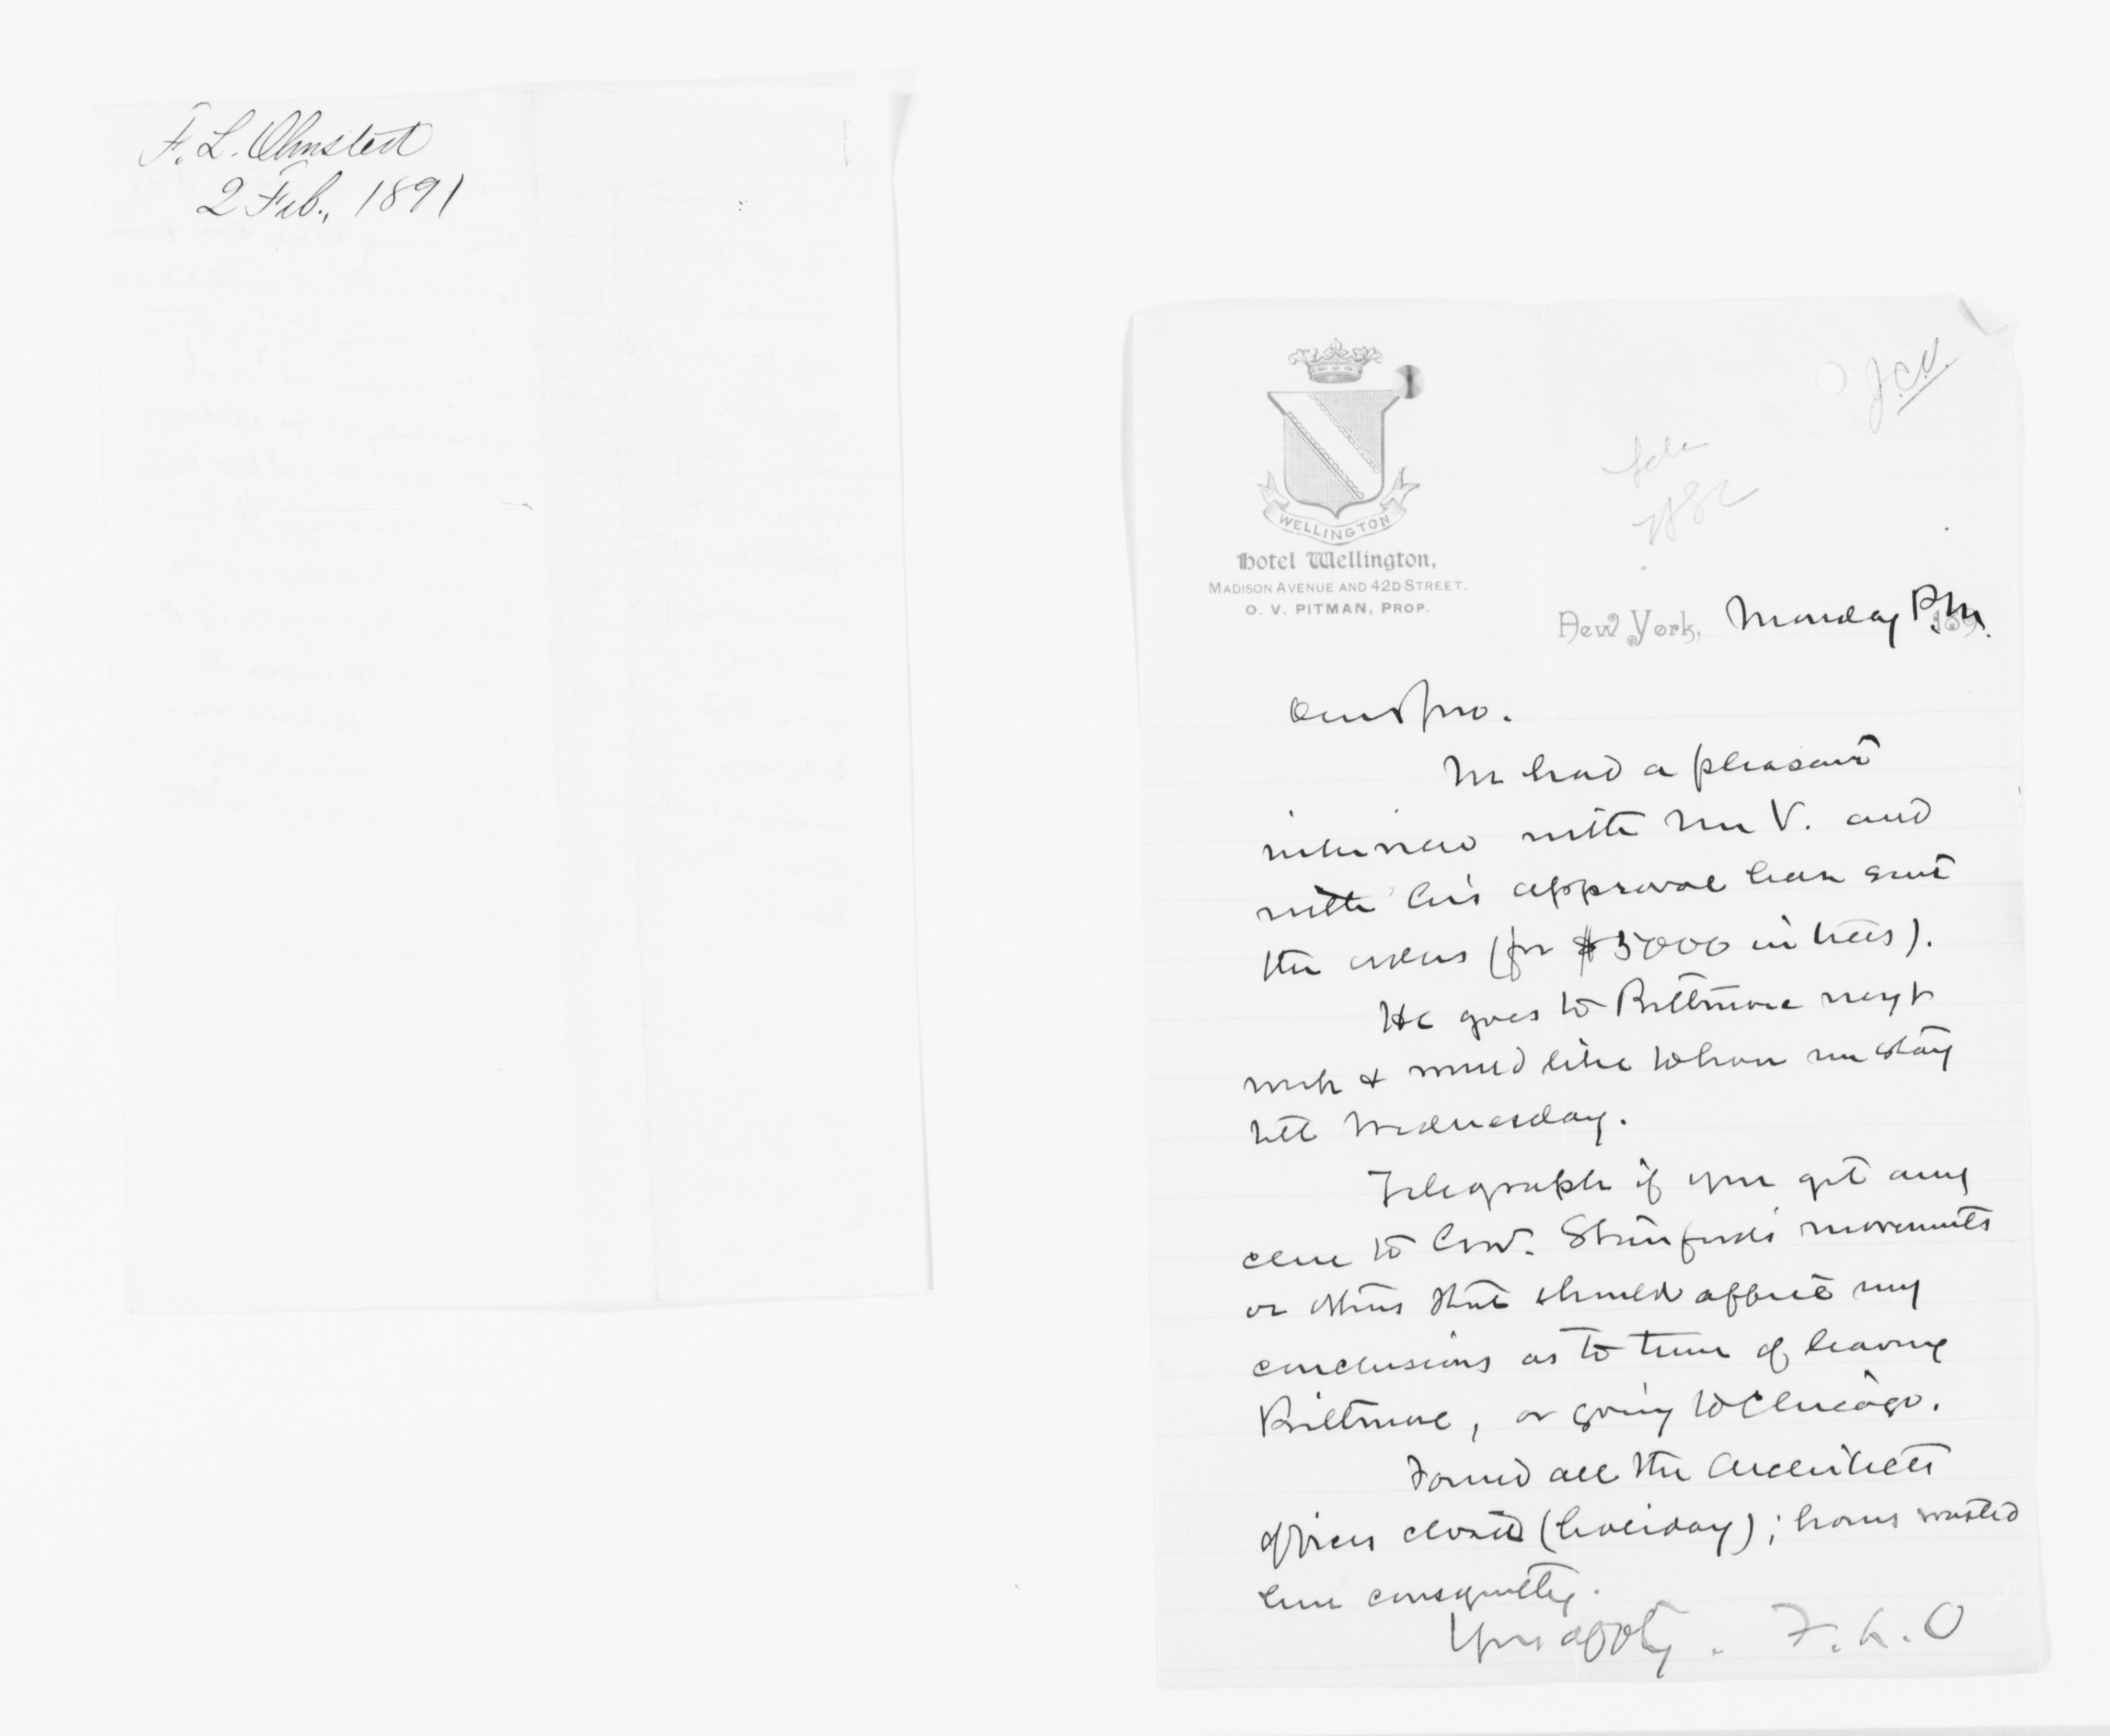 F. L. Olmsted
2 Feb., 1891
J.C.O.
file
WELLINGTON
Hotel Wellington,
MADISON AVENUE AND 42D STREET,
O. V. PITMAN, PROP.
New York, Monday P.M. 189
Dear Jno.
We had a pleasant
interview with Mr V. and
with his approval have sent
the orders (for $5000 in trees).
He goes to Biltmore next
week & would like to have me stay
till Wednesday.
Telegraph if you get any
clue to Gov. Stanford's movements
or others that should affect my
conclusions as to time of leaving
Biltmore, or going to Chicago.
Found all the Architects
offices closed (holiday); hours wasted
consequently.
Yours affcty. F. L. O